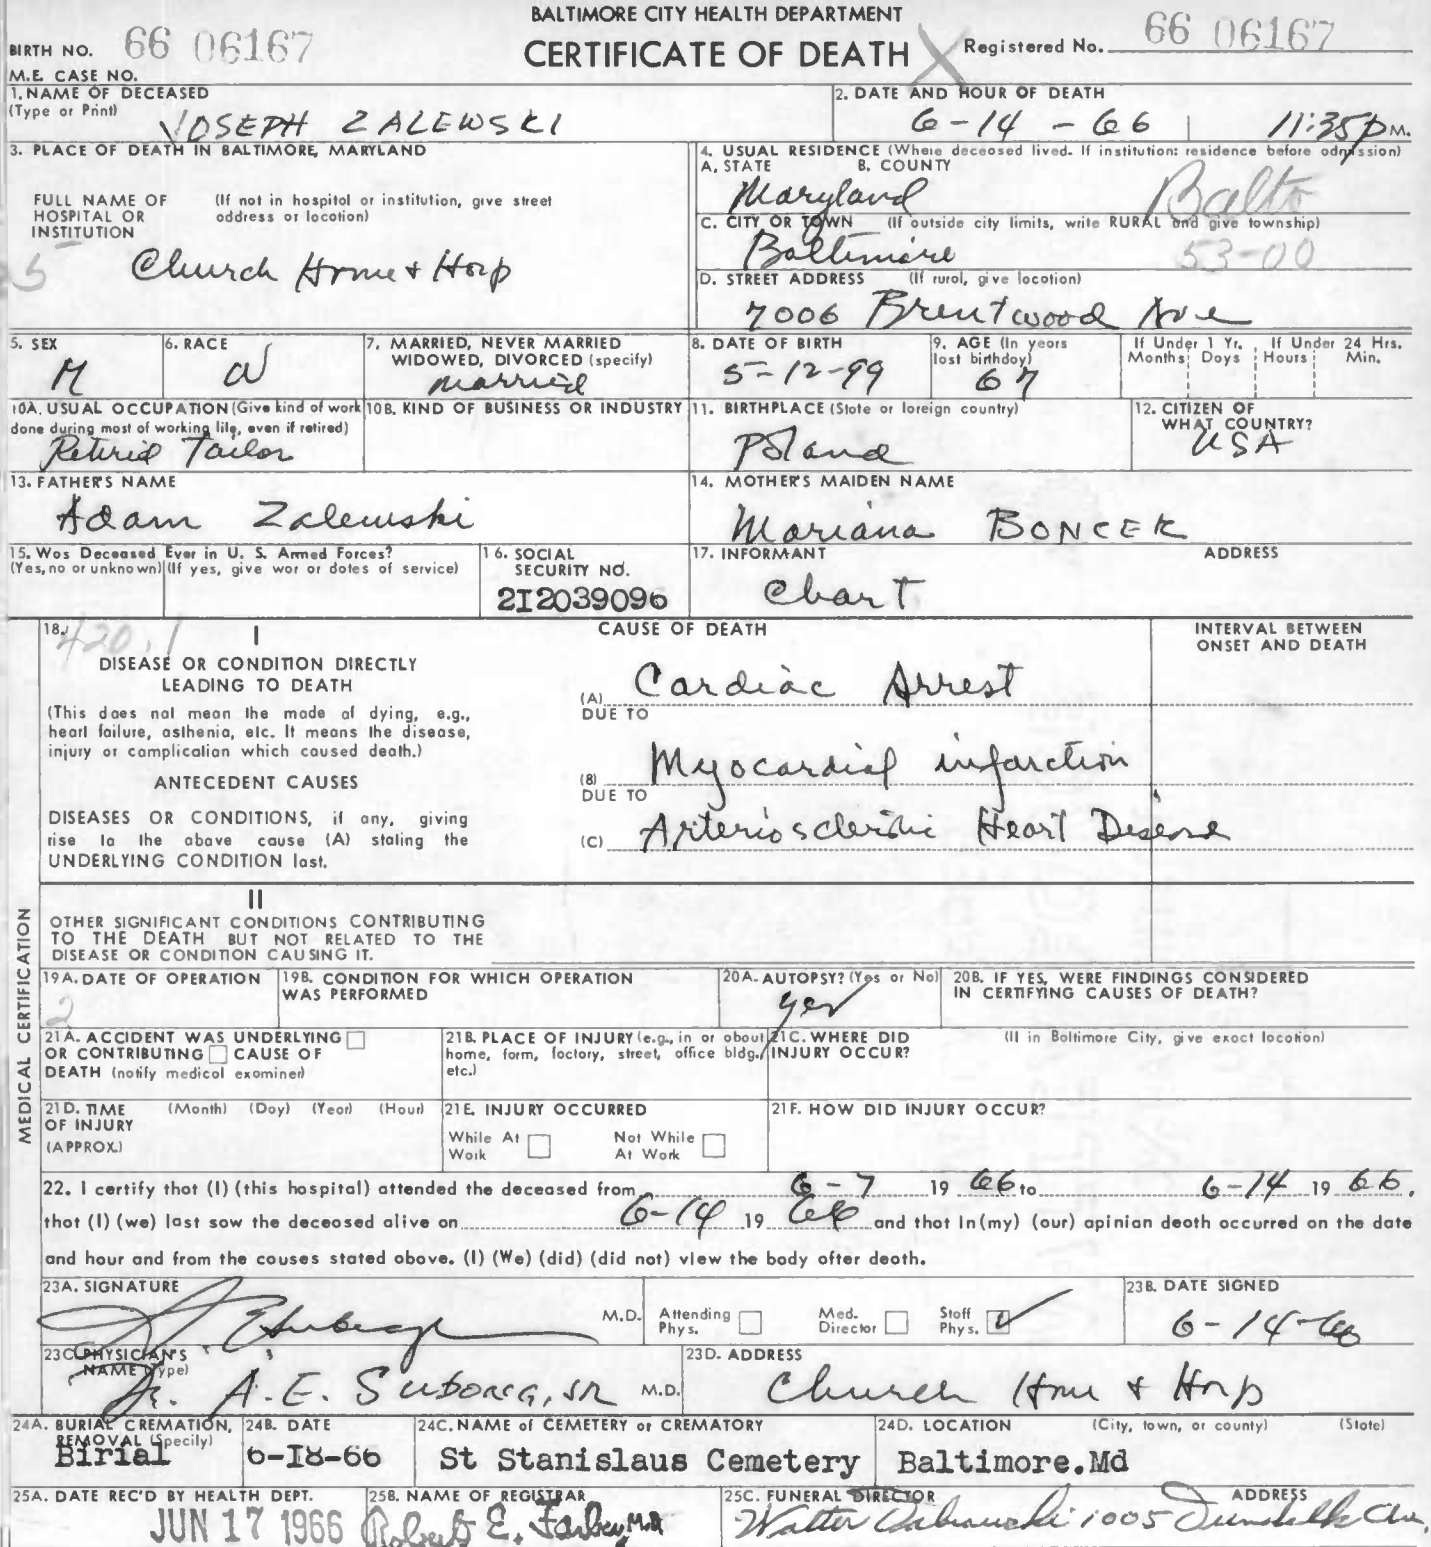 BALTIMORE CITY HEALTH DEPARTMENT
CERTIFICATE OF DEATH
BIRTH NO. 66 06167
Registered No. 66 06167
M.E. CASE NO.
1. NAME OF DECEASED
(Type or Print)
JOSEPH ZALEWSKI
2. DATE AND HOUR OF DEATH
6-14-66 11:35 P M.
3. PLACE OF DEATH IN BALTIMORE, MARYLAND
FULL NAME OF HOSPITAL OR INSTITUTION
(If not in hospital or institution, give street address or location)
5
Church Home & Hosp
4. USUAL RESIDENCE (Where deceased lived. If institution: residence before admission)
A. STATE B. COUNTY
Maryland Balto
C. CITY OR TOWN (If outside city limits, write RURAL and give township)
Baltimore 53-00
D. STREET ADDRESS (If rural, give location)
7006 Brentwood Ave
5. SEX
M
6. RACE
W
7. MARRIED, NEVER MARRIED
WIDOWED, DIVORCED (specify)
married
8. DATE OF BIRTH
5-12-99
9. AGE (In years
last birthday)
67
If Under 1 Yr.
Months Days
If Under 24 Hrs.
Hours Min.
10A. USUAL OCCUPATION (Give kind of work
done during most of working life, even if retired)
Retired Tailor
10B. KIND OF BUSINESS OR INDUSTRY
11. BIRTHPLACE (State or foreign country)
Poland
12. CITIZEN OF
WHAT COUNTRY?
USA
13. FATHER'S NAME
Adam Zalewski
14. MOTHER'S MAIDEN NAME
Mariana BONCEK
15. Was Deceased Ever in U. S. Armed Forces?
(Yes, no or unknown) (If yes, give war or dates of service)
16. SOCIAL
SECURITY NO.
2I2039096
17. INFORMANT ADDRESS
Chart
MEDICAL CERTIFICATION
18. 420.1
I
DISEASE OR CONDITION DIRECTLY
LEADING TO DEATH
(This does not mean the mode of dying, e.g.,
heart failure, asthenia, etc. It means the disease,
injury or complication which caused death.)
ANTECEDENT CAUSES
DISEASES OR CONDITIONS, if any, giving
rise to the above cause (A) stating the
UNDERLYING CONDITION last.
CAUSE OF DEATH
INTERVAL BETWEEN
ONSET AND DEATH
(A) Cardiac Arrest
DUE TO
(B) Myocardial infarction
DUE TO
(C) Arteriosclerotic Heart Disease
II
OTHER SIGNIFICANT CONDITIONS CONTRIBUTING
TO THE DEATH BUT NOT RELATED TO THE
DISEASE OR CONDITION CAUSING IT.
19A. DATE OF OPERATION
2
19B. CONDITION FOR WHICH OPERATION
WAS PERFORMED
20A. AUTOPSY? (Yes or No)
yes
20B. IF YES, WERE FINDINGS CONSIDERED
IN CERTIFYING CAUSES OF DEATH?
21A. ACCIDENT WAS UNDERLYING
OR CONTRIBUTING CAUSE OF
DEATH (notify medical examiner)
21B. PLACE OF INJURY (e.g., in or about
home, farm, factory, street, office bldg.,
etc.)
21C. WHERE DID
INJURY OCCUR?
(If in Baltimore City, give exact location)
21D. TIME (Month) (Day) (Year) (Hour)
OF INJURY
(APPROX.)
21E. INJURY OCCURRED
While At
Work
Not While
At Work
21F. HOW DID INJURY OCCUR?
22. I certify that (I) (this hospital) attended the deceased from 6-7 19 66 to 6-14 19 66,
that (I) (we) last saw the deceased alive on 6-14 19 66 and that in (my) (our) opinion death occurred on the date
and hour and from the causes stated above. (I) (We) (did) (did not) view the body after death.
23A. SIGNATURE
M.D.
Attending
Phys.
Med.
Director
Staff
Phys.
23B. DATE SIGNED
6-14-66
23C. PHYSICIAN'S
NAME (Type)
Dr. A. E. SUBONG, JR M.D.
23D. ADDRESS
Church Home & Hosp
24A. BURIAL CREMATION,
REMOVAL (Specify)
Birial
24B. DATE
6-I8-66
24C. NAME of CEMETERY or CREMATORY
St Stanislaus Cemetery
24D. LOCATION (City, town, or county) (State)
Baltimore.Md
25A. DATE REC'D BY HEALTH DEPT.
JUN 17 1966
25B. NAME OF REGISTRAR
Robert E. Farber, M.D.
25C. FUNERAL DIRECTOR ADDRESS
Walter Dabrowski 1005 Dundalk Ave.